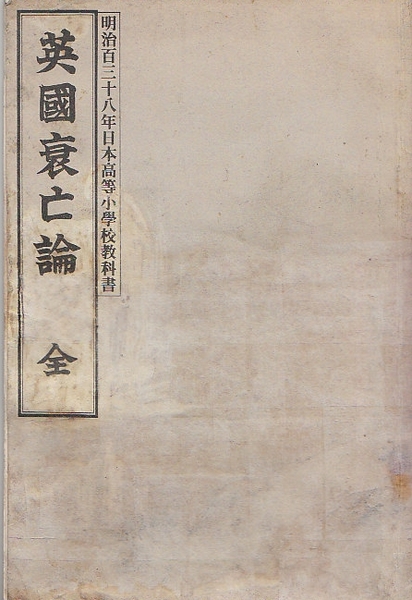 明治百三十八年日本高等小學校教科書
英國衰亡論 全